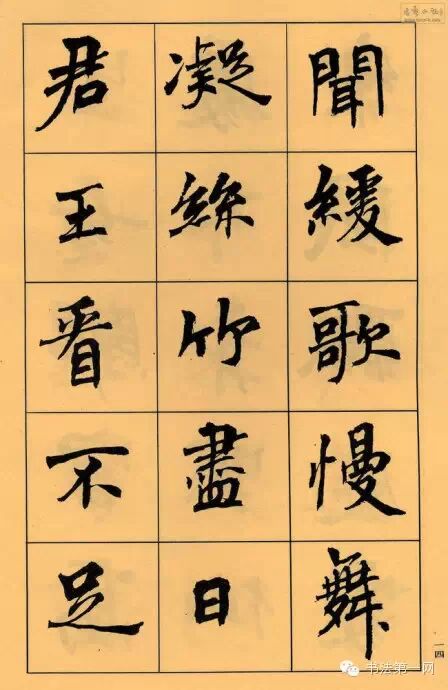 聞緩歌慢舞
凝絲竹盡日
君王看不足
一四
书法第一网